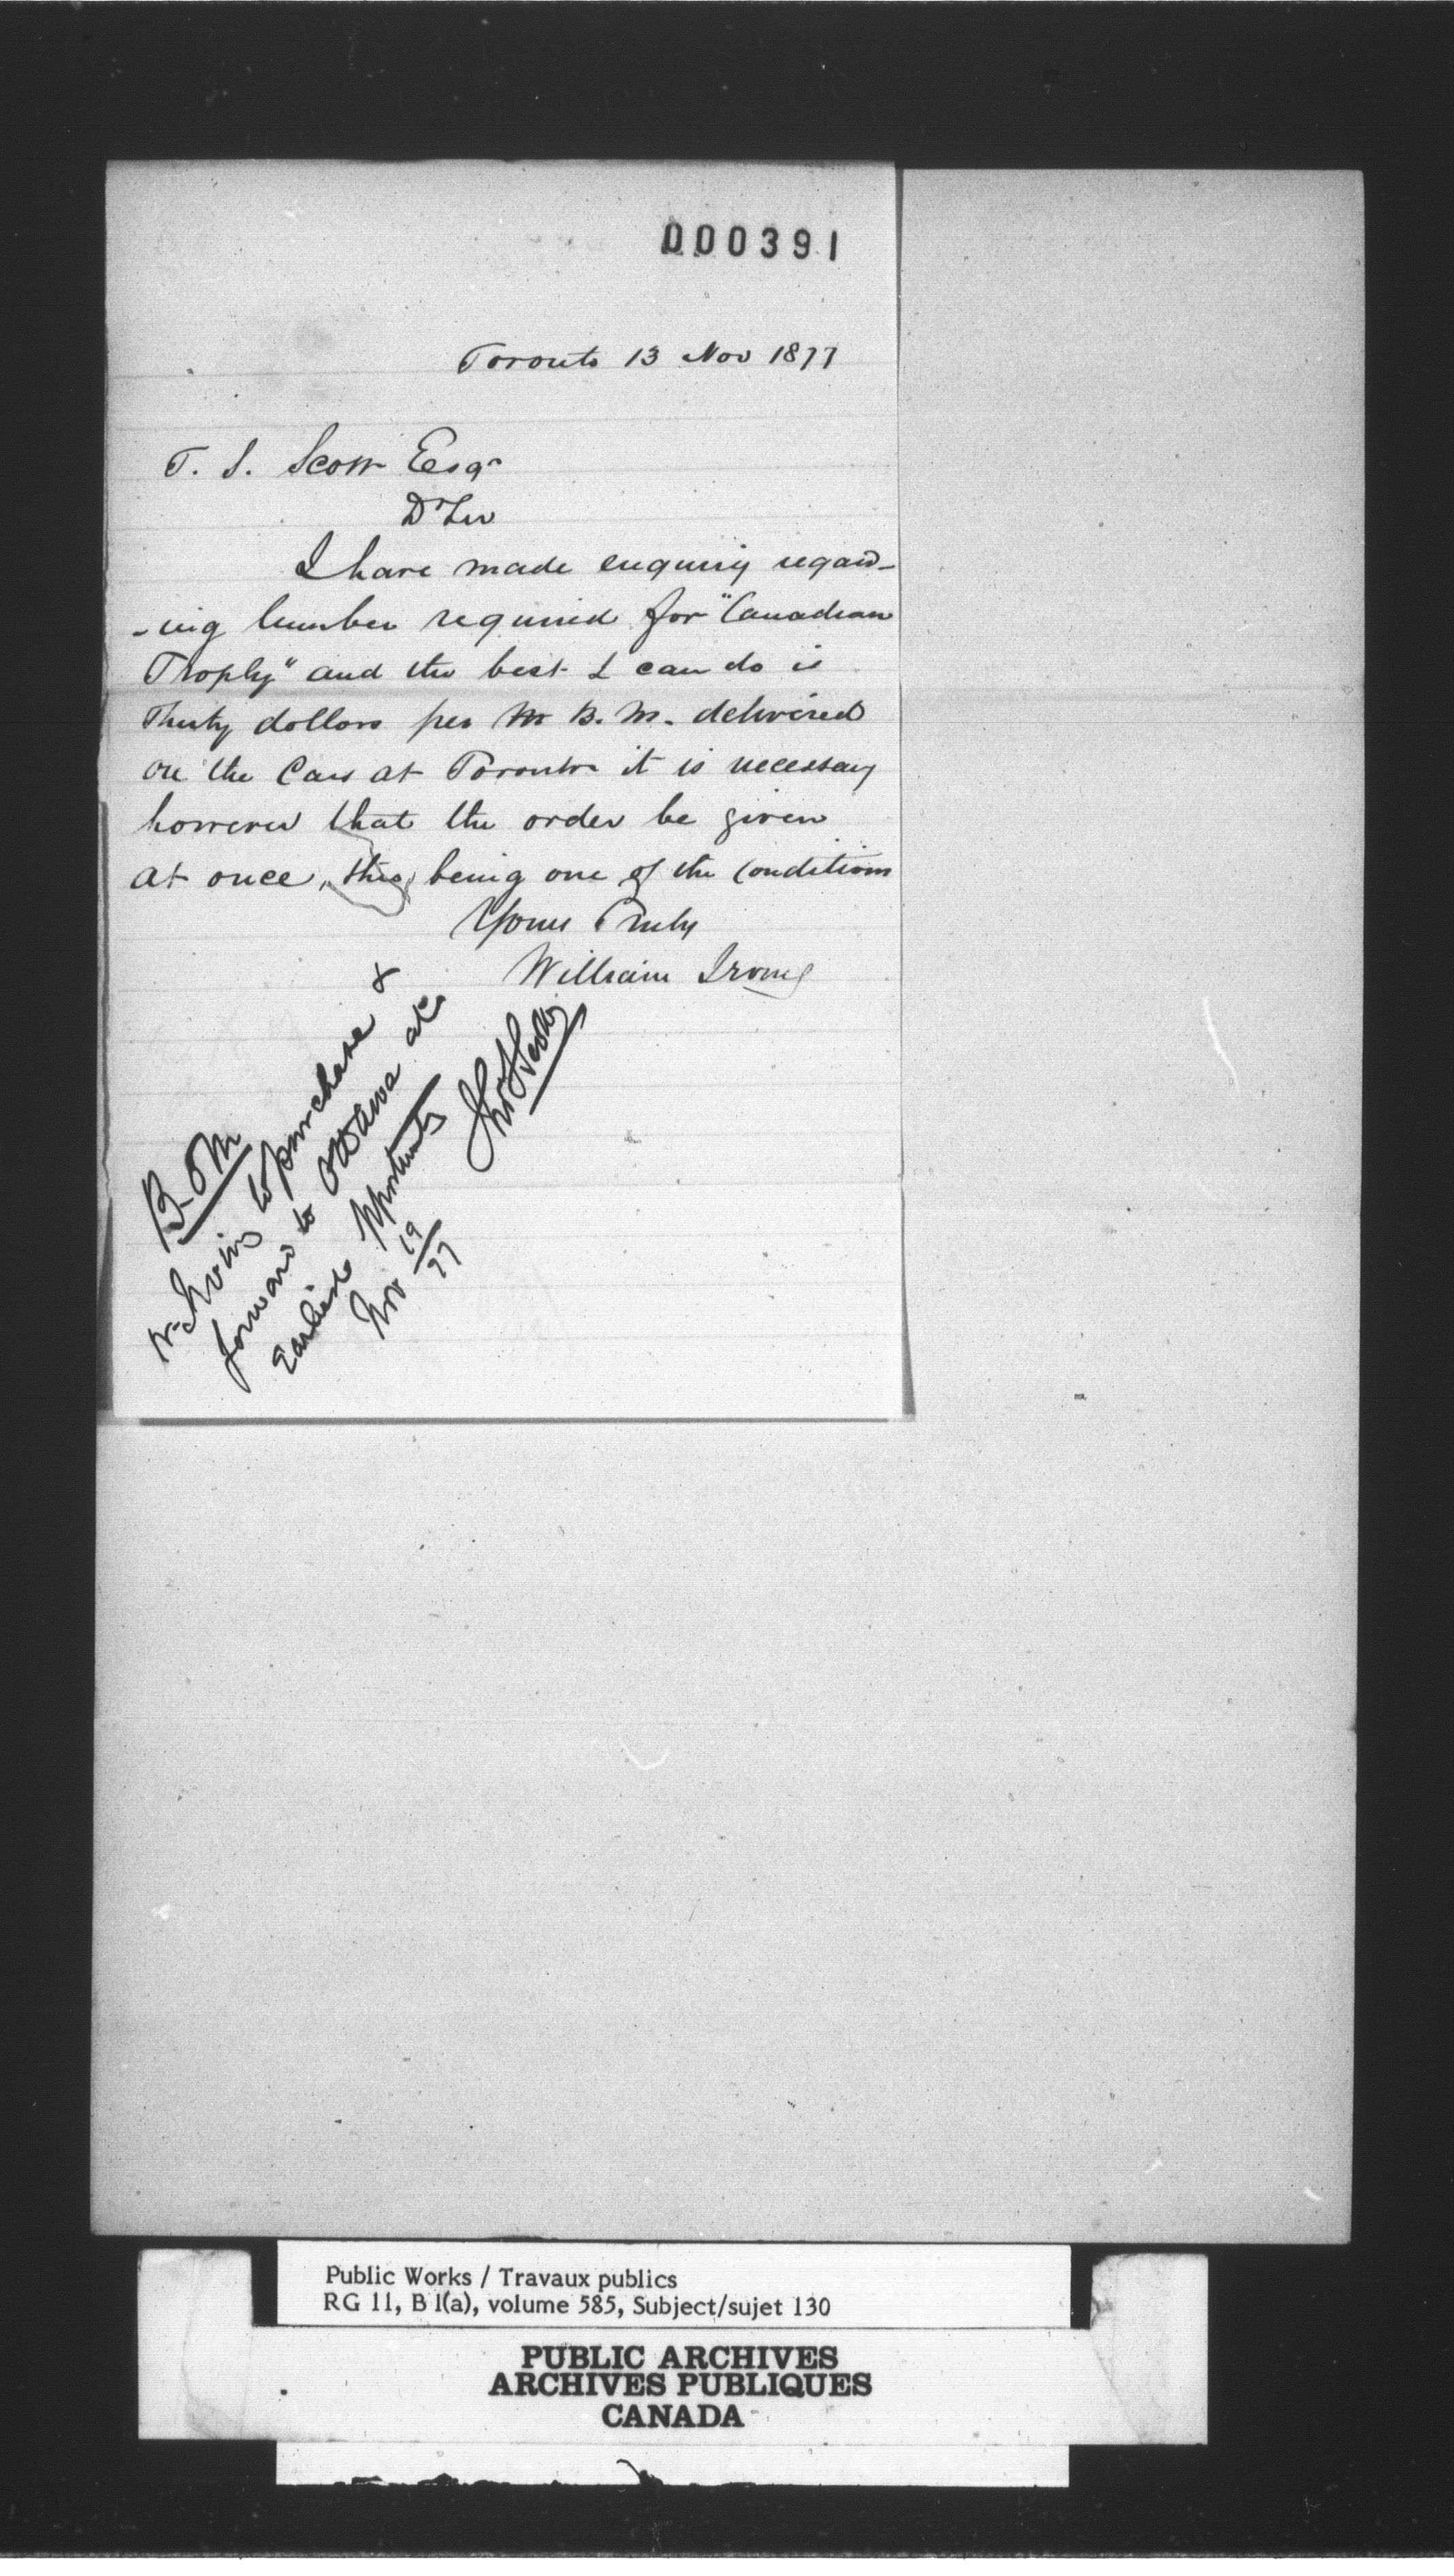 000391
Toronto 13 Nov 1877
T. S. Scott Esqr
Dr Sir
I have made enquiry regard-
-ing lumber required for "Canadian
Trophy" and the best I can do is
Thirty dollars per M B. M. delivered
on the Cars at Toronto it is necessary
however that the order be given
at once, this being one of the conditions
Yours Truly
William Irving
B. of M
Irving to purchase &
forward to Ottawa at
Earliest opportunity
Nov 19/77
Thos S Scott
Public Works / Travaux publics
RG 11, B 1(a), volume 585, Subject/sujet 130
PUBLIC ARCHIVES
ARCHIVES PUBLIQUES
CANADA